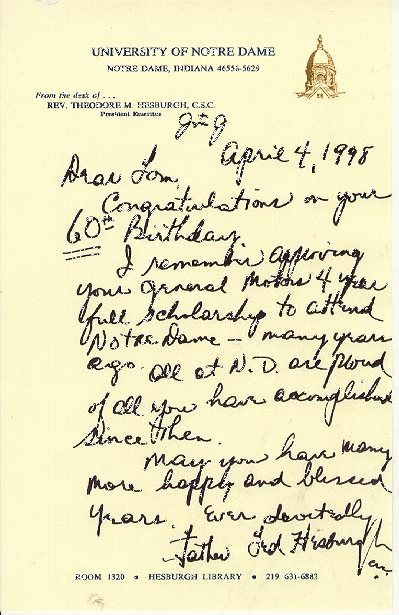 UNIVERSITY OF NOTRE DAME
NOTRE DAME, INDIANA 46556-5629
From the desk of . . .
REV. THEODORE M. HESBURGH, C.S.C.
President Emeritus
April 4, 1998
Dear Tom,
Congratulations on your
60th Birthday
I remember approving
your General Motors 4 year
full scholarship to attend
Notre Dame — many years
ago. All at N.D. are proud
of all you have accomplished
since then.
May you have many
more happy and blessed
years. Ever devotedly
Father Ted Hesburgh
ROOM 1320 • HESBURGH LIBRARY • 219 631-6882